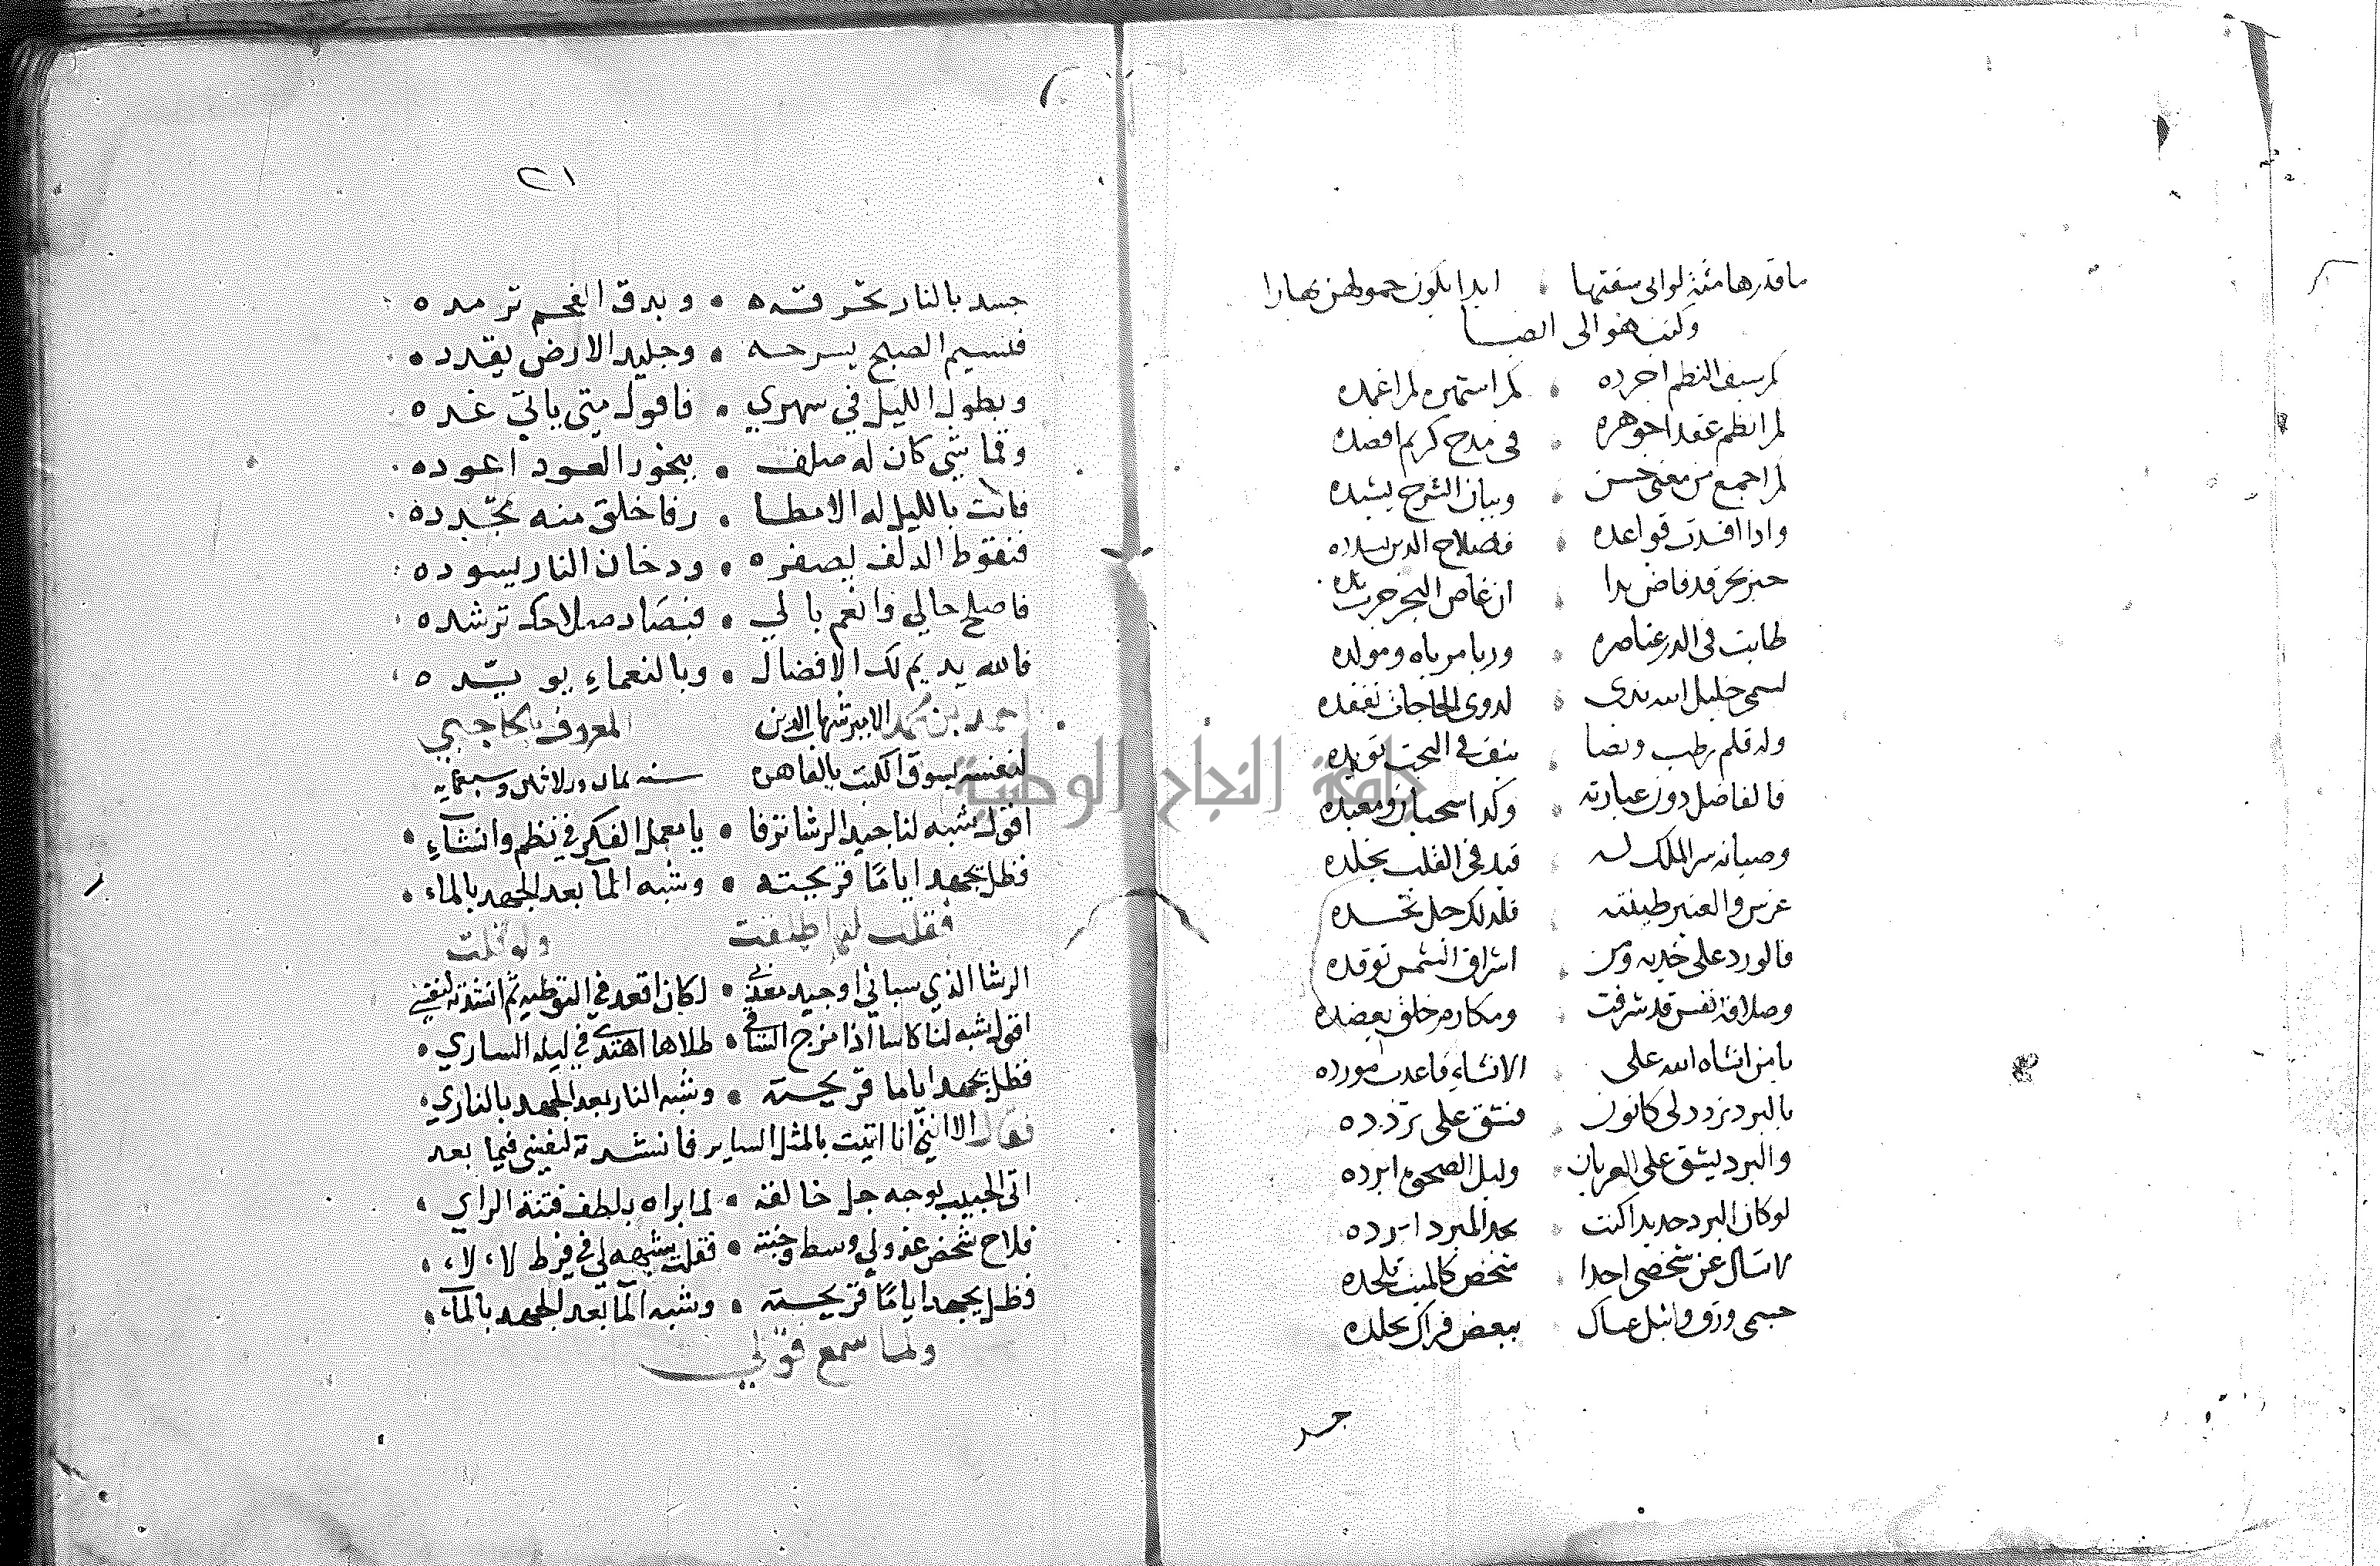 ما قدرها مئة لو انى سقتها ۰ ابدا يكون حمولهن بهارا
وكتب هو الى ايضا
لم سيف النظم اجرده ۰ لم استمره لم اغمده
لم انظم عقدا جوهره ۰ فى مدح كريم اقصده
لم اجمع من معنى حسن ۰ وبيان الشرح يشيده
واذا افسدت قواعده ۰ فصلاح الدين يسدده
حبر بحر قد فاض ندا ۰ ان غاص البحر
طابت فى الدر عناصره ۰ وربا مرباه ومولده
لسمى خليل الله ندى ۰ لدوى الحاجات تفقده
وله قلم رطب ۰ فى البحث
فالفاضل دون عبارته ۰ وكدا سحبان ومعبده
وصيانه سر الملك له ۰ قيد فى القلب يخلده
طينته ۰ فلدلك حل
فالورد على خديه ومن ۰ اشراق الشمس توقده
نفس قد شرفت ۰ ومكارم خلق تعضده
يا من انشاه الله على ۰ الانشاء فاعدب مورده
بالبرد تردد لى كانون ۰ فشق على تردده
والبرد يشق على العريان ۰ وليل الصحو ابرده
لو كان البرد حديدا كنت ۰ بحد المبرد ابرده
لا تسال عن شخصى احدا ۰ شخص كالميت تلحده
جسمى ورق ۰ ببعض فراك تجلده
جسد
٢١
جسد بالنار تحرقه ۰ وبدق الفحم ترمده
فنسيم الصبح يسرحه ۰ وجليد الارض يقدده
ويطول الليل في سهري ۰ فاقول متى ياتي غده
وقماشي كان له صلف ۰ ببخور العود اعوده
بالليل له الامطا ۰ رفا خلق منه تجدده
فنقوط الدلف يصفره ۰ ودخان النار يسوده
فاصلح حالي وانعم بالي ۰ فبصاد صلاحك ترشده
فالله يديم لك الافضال ۰ وبالنعماء يويده
احمد بن محمد الامير شهاب الدين المعروف بالحاجبي
لنفسه بسوق الكتب بالقاهره سنه ثمان وثلاثين وسبعمايه
اقول شبه لنا جيد الرشا ترفا ۰ يا معمل الفكر في نظم وانشآء
فظل يجهد اياما قريحته ۰ وشبه المآ بعد الجهد بالماء
فقلت ولو قلت
الرشا الذي سباني او جيد معذبي ۰ لكان اقعد في التوطيه ثم انشدته لنفسي
اقول شبه لنا كاسا اذا مزج الساقي ۰ طلاها اهتدى في ليله الساري
فظل يجهد اياما قريحته ۰ وشبه النار بعد الجهد بالناري
فقال الا انني انا اتيت بالمثل الساير فانشدته لنفسي فيما بعد
اتى الحبيب بوجه جل خالقه ۰ لما براه بلطف فتنة الراي
فلاح شخص عذولي وسط وجنته ۰ فقلت شبهه لي في فرط لا، لا،
فظل يجهد اياما قريحته ۰ وشبه المآ بعد الجهد بالمآء
ولما سمع قولي
جامعة النجاح الوطنية